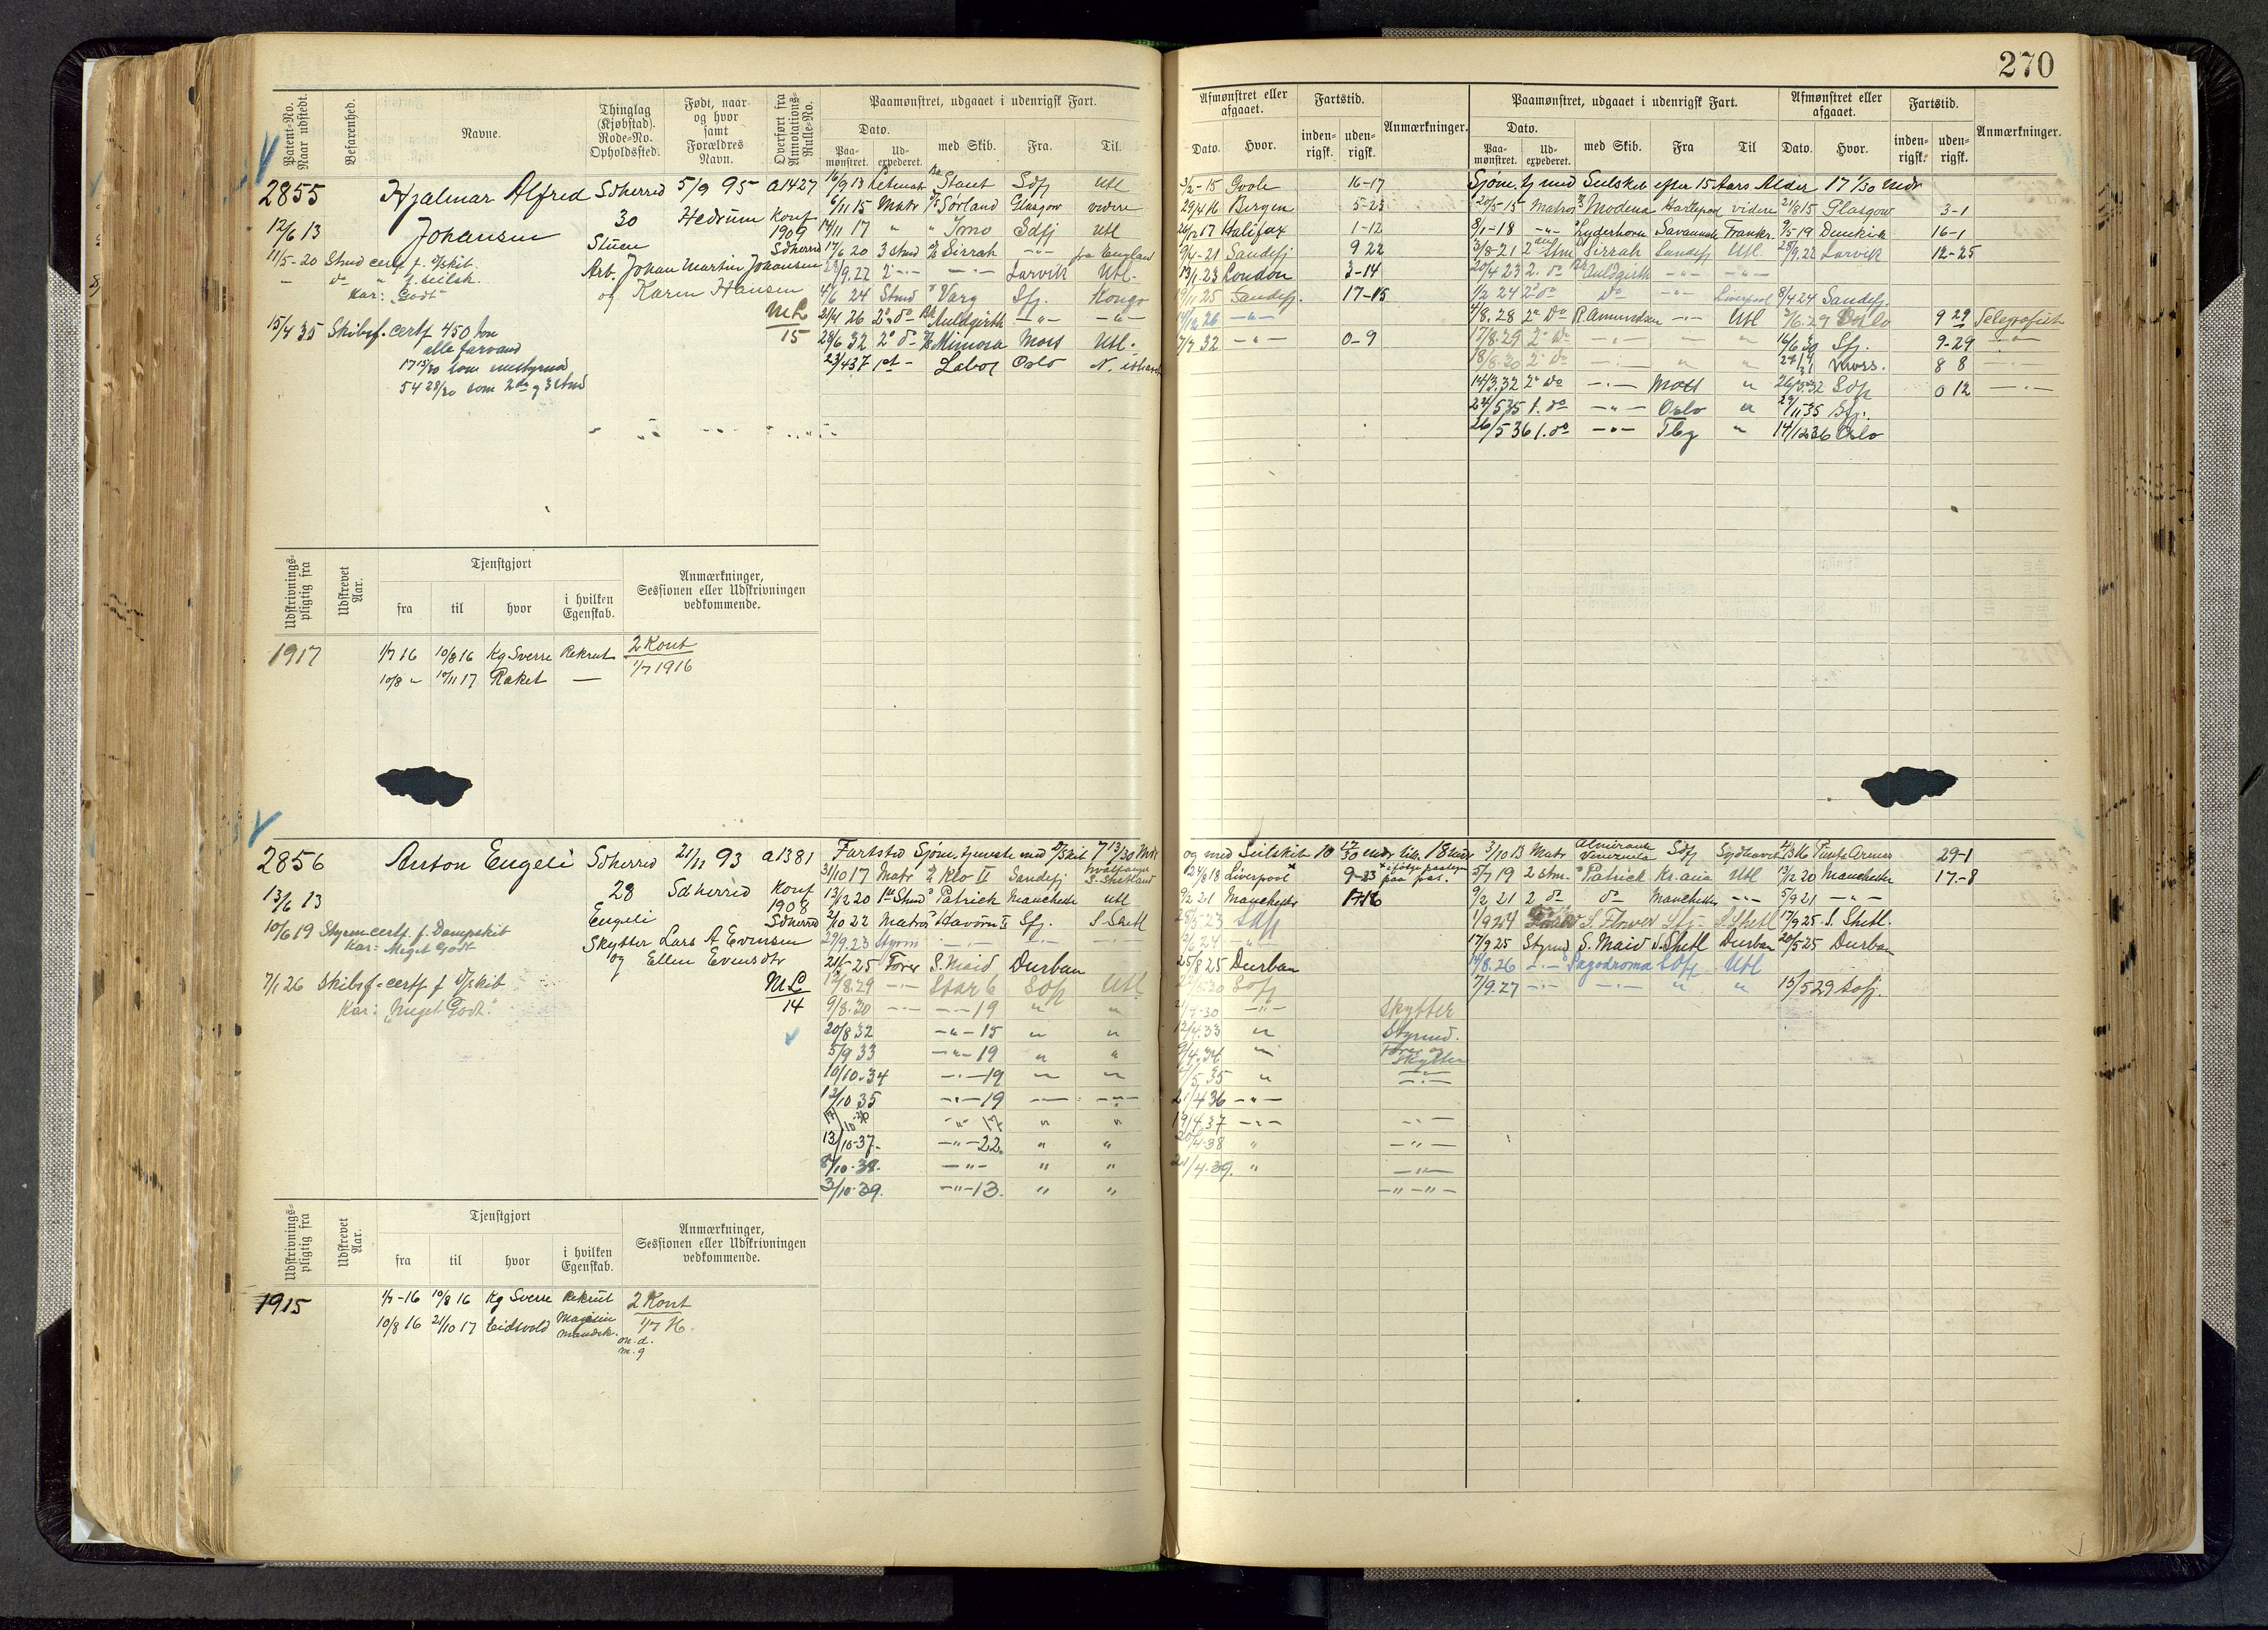 270
Patent-No. Naar udstedt.
Befarenhed.
Navne.
Thinglag (Kjøbstad). Rode-No. Opholdssted.
Født, naar og hvor samt Forældres Navn.
Overført fra Annotations-Rulle-No.
Paamønstret, udgaaet i udenrigsk Fart.
Dato.
Paa-mønstret.
Ud-expederet.
med Skib.
Fra.
Til.
Afmønstret eller afgaaet.
Dato.
Hvor.
Fartstid.
inden-rigsk.
uden-rigsk.
Anmærkninger.
Paamønstret, udgaaet i udenrigsk Fart.
Dato.
Paa-mønstret.
Ud-expederet.
med Skib.
Fra
Til
Afmønstret eller afgaaet.
Dato.
Hvor.
Fartstid.
inden-rigsk.
uden-rigsk.
Anmærkninger.
2855 Hjalmar Alfred Sdherred 5/9 95 a1427
12/6 13 Johansen 30 Hedrum Konf 1909 Sdherred
Stuen
Arb. Johan Martin Johansen
og Karin Hansen
ML
15
11/5-20 Stmd certf. f. d/skib.
— do " f. seilsk.
Kar: Godt
15/4 35 Skibsf. certf 450 ton
alle farvand
17 15/30 som enestyrmd
54 28/30 som 2den og 3 stmd
16/9 13 Letmatr Staut Sdfj Utl
6/11 15 Matr Sørland Glasgow videre
14/11 17 " " Imo Sdfj Utl
17/6 20 3 stmd Sirrah —"— fra England
28/9.22 2 —"— —"— Larvik Utl.
4/6 24 Stmd Varg Sfj. Kongo
21/4 26 2. do Auldgirth —"— —"—
24/6 32 2. do Mimosa Moss Utl.
23/4 37 1st — Labor Oslo N. ishavet
3/2-15 Goole 16-17
29/4 16 Bergen 5-23
26/2 17 Halifax 1-12
9/4-21 Sandefj 9 22
13/1.23 London 3-14
19/11 25 Sandefj. 17-15
14/12 26 —"—
7/7 32 —"— 0-9
Sjøm. tj med Seilskib efter 15 Aars Alder 17 1/30 mdr
20/5-15 Matros Modena Hartlepool videre 21/8 15 Glasgow 3-1
8/1-18 —"— Lyderhorn Savannah Frankr. 9/5-19 Dunkirk 16-1
3/8-21 2den Stm Sirrah Sandefj Utl. 28/9.22 Larvik 12-25
20/4 23 2. do Auldgirth —"— —"—
1/2 24 2 do do —"— Liverpool 8/4 24 Sandefj.
4/8.28 2. do R. Amundsen —"— Utl 2/6.29 Oslo 9 29 Telegrafist
17/8.29 2. do —"— " " 16/6 30 Sfj. 9-29 —"—
18/8.30 2. do —"— " " Moss. 8 8
14/3.32 2. do —"— Moss " 26/5.32 Sdfj 0 12 —"—
24/5 35 1. do —"— Oslo " 29/11 35 Sfj.
26/5 36 1. do —"— Tbg " 14/12 36 Oslo
Udskrivnings-pligtig fra
Udskrevet Aar.
Tjenstgjort
fra
til
hvor
i hvilken Egenskab.
Anmærkninger, Sessionen eller Udskrivningen vedkommende.
1917 1/7 16 10/8 16 Kg Sverre Rekrut 2 Kont
10/8 " 10/11 17 Raket — 1/7 1916
2856 Anton Engeli Sdherred 21/11 93 a1381
13/6 13 28 Sdherred Konf 1908 Sdherred
Engeli
Skytter Lars A Evensen
og Ellen Evensdtr
ML
14
10/6 19 Styrm certf. f. Dampskib
Kar: Meget Godt
7/1 26 Skibsf. certf f d/skib
Kar: "Meget Godt."
Fartstid Sjøm. tjeneste med d/skib 7 13/30 Mdr
31/10 17 Matr Klo II Sandefj hvalfanger S. Shetland
13/12 20 1ste Stmd Patrick Manchester Utl
2/10 22 Matros Havørn II Sfj. S Shetl
29/9.23 Styrm —"— —"— —"—
21/5-25 Fører S. Maid Durban
18/8.29 —"— Star 6 Sdfj Utl
9/8.30 —"— —"—19 " "
20/8 32 —"—15 " "
5/9 33 —"—19 " "
10/10.34 —"—19 " "
12/10 35 —"—19 —"— —"—
—"—17 " "
13/10-37. —"—22. " "
8/10-38. —"— " "
3/10-39. —"—13. " "
og med Seilskib 10 17/30 mdr tils. 18 mdr
24/8 18 Liverpool 9-23
9/2 21 Manchester 17-16
25/8 25 Durban
—"— Skytter
12/4.33 " Styrmd.
9/4.34 " Fører og Skytter
5.35 " —"—
21/4 36 —"—
19/4.37 —"— —"—
20/4-38 " —"—
21/4.39. " —"—
—"—"—
3/10 13 Matr Almirante Venezuela Sdfj Sydhavet Punta Arenas 29-1
5/7 19 2 stm. Patrick Kr.ania Utl 13/12 20 Manchester 17-8
9/2 21 2 do do Manchester —"— 5/9 21 —"—
1/9 24 S. Flower Sfj. S Shetl 17/9 25 S. Shetl.
17/9 25 Styrmd S. Maid S. Shetl Durban 20/5 25 Durban
14/8.26 —"— Pagodroma Sdfj Utl
7/9.27 —"— —"— " " 15/5 29 Sdfj.
Udskrivnings-pligtig fra
Udskrevet Aar.
Tjenstgjort
fra
til
hvor
i hvilken Egenskab.
Anmærkninger, Sessionen eller Udskrivningen vedkommende.
1915 1/7-16 10/8 16 Kg Sverre Rekrut 2 Kont
10/8 16 21/10 17 Eidsvold 1/7 16.
m. d.
m. g